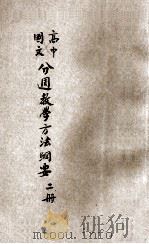 高中
國文
分週教學方法綱要 二冊